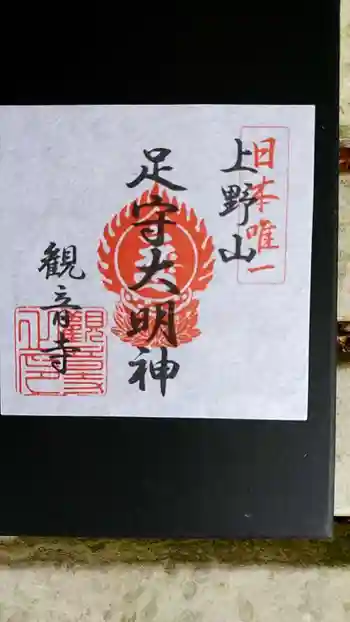 日本唯一
上野山
足守大明神
観音寺